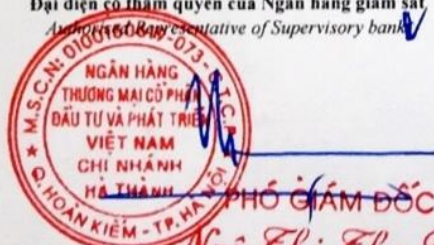 Đại diện có thẩm quyền của Ngân hàng giám sát
Authorised Representative of Supervisory bank
NGÂN HÀNG
THƯƠNG MẠI CỔ PHẦN
ĐẦU TƯ VÀ PHÁT TRIỂN
VIỆT NAM
CHI NHÁNH
HÀ THÀNH
Q. HOÀN KIẾM - TP. HÀ NỘI
PHÓ GIÁM ĐỐC